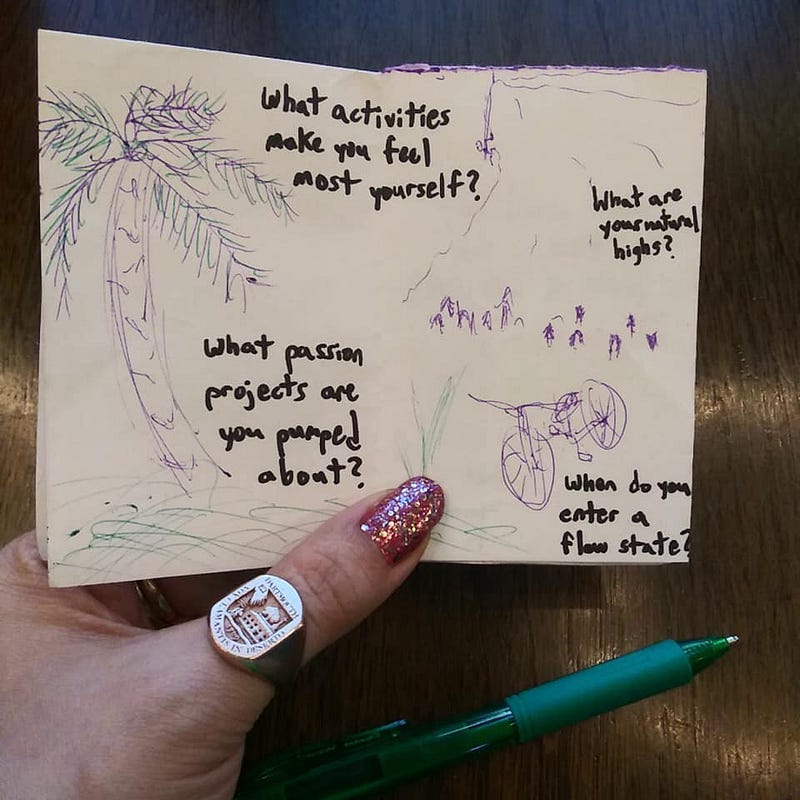 What activities
make you feel
most yourself?
What passion
projects are
you pumped
about?
What are
your natural
highs?
When do you
enter a
flow state?
DARTMOUTH
VOX CLAMANTIS IN DESERTO